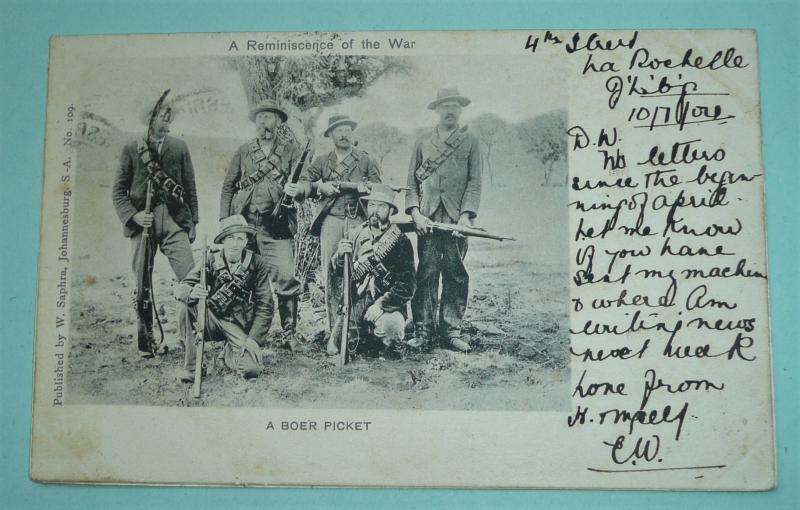 A Reminiscence of the War
Published by W. Saphra, Johannesburg. S-A. No. 109.
A BOER PICKET
4th Street
La Rochelle
J'h'b'g
10/7/04
D.W.
No letters
since the begin
ning of april.
Let me know
if you have
sent my machine
& where. Am
writing news
next week
Love from
H. & myself
E.W.